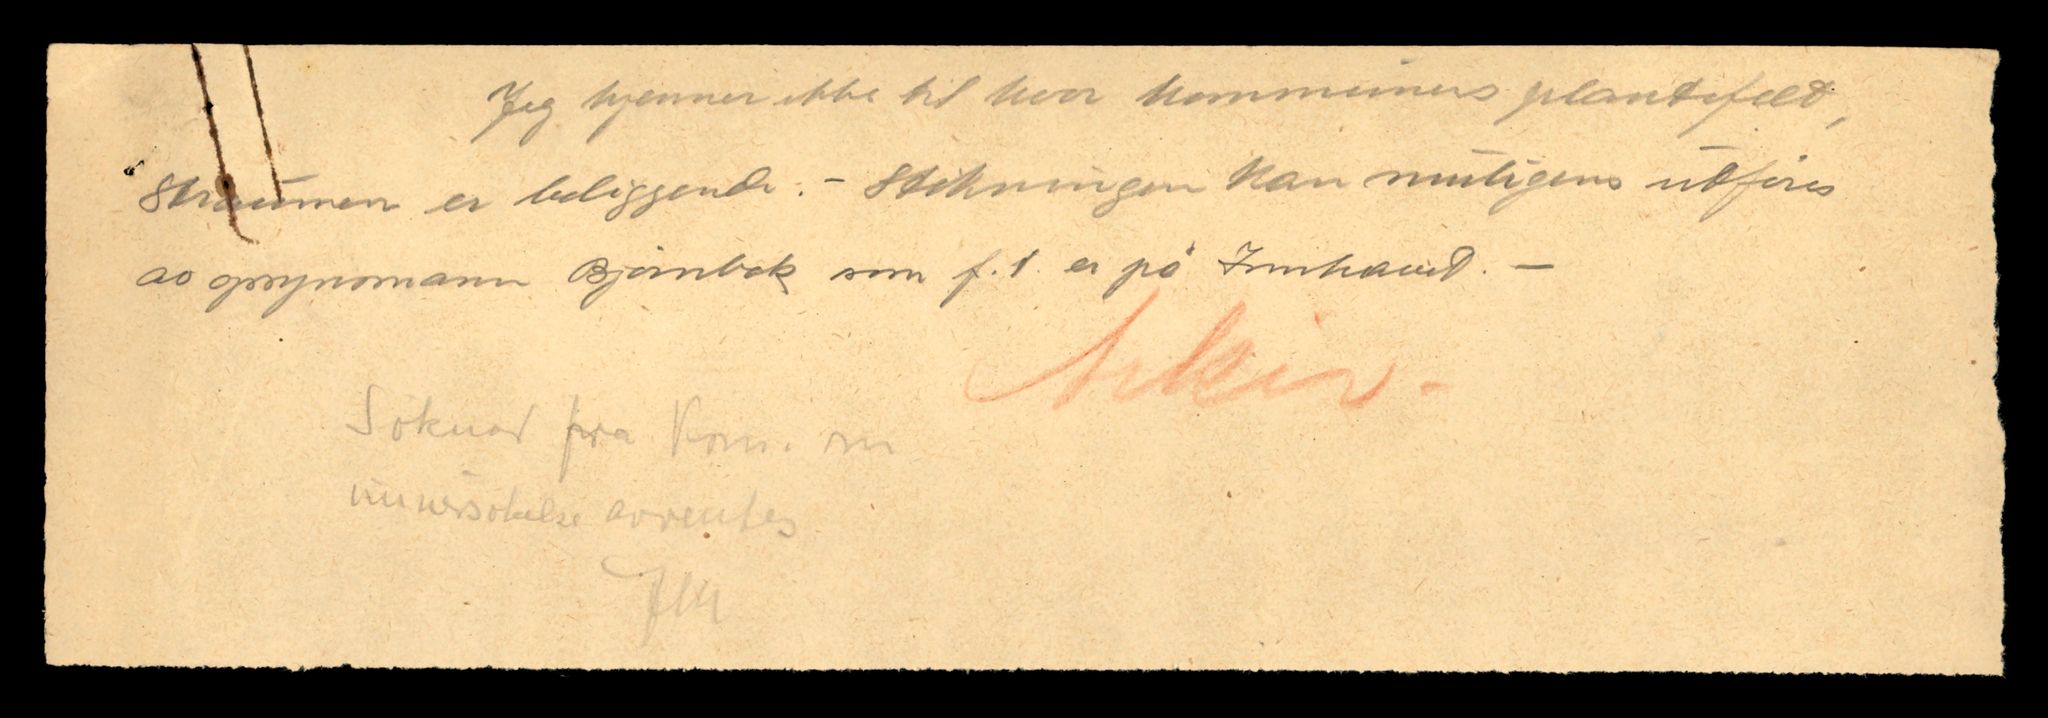 Jeg kjenner ikke til hvor kommunens plantefelt,
Straumen er beliggende. - Stikningen kan muligens utføres
av opsynsmann Bjørnbak som f.t. er på Innhavet. -
Arkiv -
Søknad fra Kom. om
undersøkelse avventes